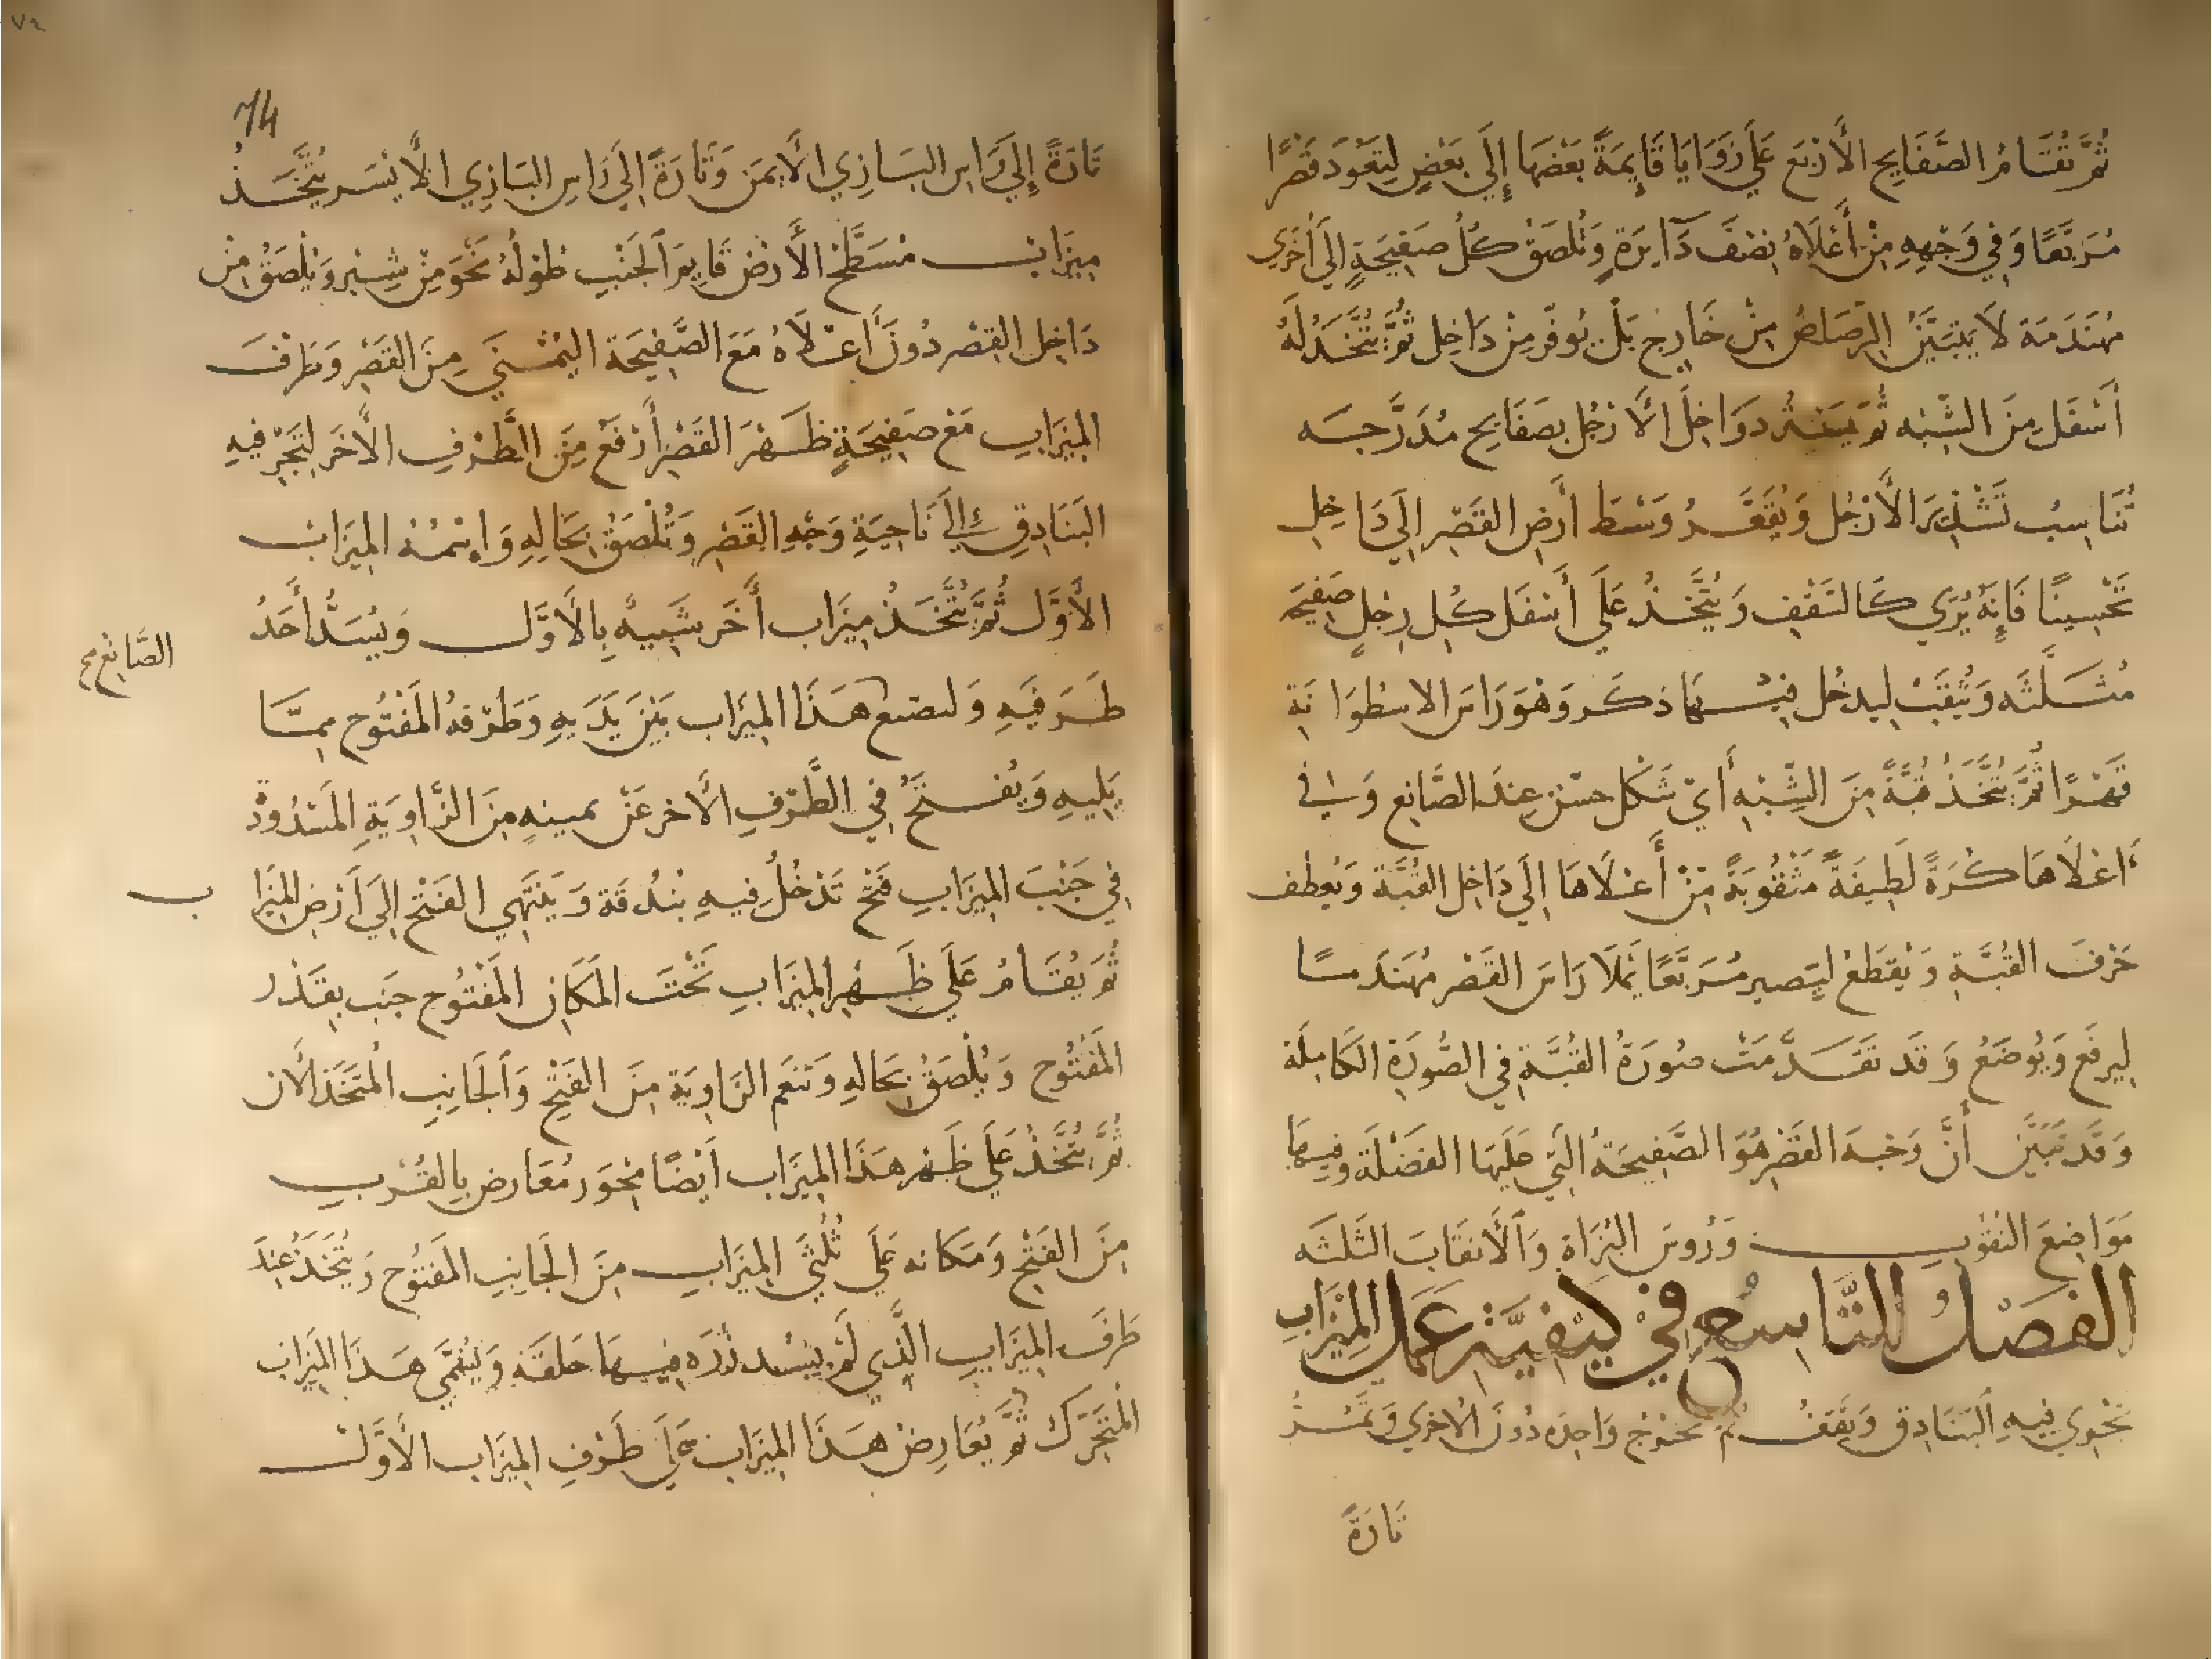 ثُمَّ تُقَامُ الصَّفَايِح الأَرْبَع عَلَي زَوَايَا قَايِمَةً بَعْضِهَا إِلَي بَعْضٍ لِتَعُودَ قَصْرًا
مُرَبَّعًا وَفِي وَجْهِهِ مِنْ أَعْلَاهُ نِصْفَ دَايِرَةٍ وَتُلصَقُ كُلُ صَفِيحَةٍ إلَي أُخْرَي
مُهَندَمَة لَا يَتَبَيَّنُ الرَّصَاصُ مِنْ خَارِج بَلْ يُوفَّر مِنْ دَاخِل ثُمَّ يُتَّخَذُ لَهُ
أَسْفَل مِنَ الشَّبْه ثُمَ دَوَاخِلَ الأَرْجُل بِصَفَايِح مُدَرَّجَسه
تُنَاسِبُ تَشْكِيرَ الأَرْجُل وَيُقَعَّرُ وَسْطَ أَرْضِ القَصْر إلَي دَاخِل
تَحْسِينًا فَإِنَهُ يُرَي كَالسَقْفِ وَيُتَّخَذُ عَلَي أَسْفَل كُلِ رِجْلٍ صَفِيحَه
مُثَلَّثَه وَيُثقَبُ لِيدخُل فِيهَا ذكَر وَهْوَ رَاسَ الاسْطوَانَة
قَهْرًا ثُمَّ يُتَّخَذُ قُبَّةً مِنَ الشَّبْهِ أَيّ شَكْل حسُنَ عِندَ الصَّانِع وَفي
أَعْلَاهَا كُرَةً لَطِيفَةً مَثْقُوبَةً مِنْ أَعْلَاهَا إلَي دَاخِلِ القُبَّة وَيُعطَف
حَرْفَ القُبَّةِ وَيُقطَعُ لِيَصير مُرَبَّعًا يَملَا رَاسَ القَصْر مُهَندَمًا
لِيرفَع وَيُوضَعُ وَقَد تَقَدَّمَتْ صُورَةُ القُبَّةِ فِي الصُّورَةِ الكَامِلَة
وَقَد تَبَيَّنَ أَنَّ وَجْهَ القَصْر هُوَ الصَّفِيحَةُ التَي عَلَيهَا الفَضْلَة وَفِيهَا
مَوَاضِعَ النُقوُبِ وَرُوسَ البُزَاةِ وَالأَنقَابَ الثَلثَه
الفَصْلُ التَّاسِعُ فِيْ كَيْفِيَّةِ عَمَلِ المِيْزَابِ
تَحْوِي فِيهِ البَنَادِق وَيَقفُ ثُمَّ تَخرُج وَاحِده دُونَ الاُخرَي وَتَمُرُّ
تَارَةً
٧٤
74
تَارَةً إِلَي رَاسِ البَازِي الأَيمَن وَتَارَةً إلَي رَاسِ البَازِي الأَيسَر يُتَّخَذُ
مِيزَابٌ مُسَطَّحُ الأَرضِ قَايِمَ الجَنْبِ طُولُهُ نَحْوَ مِنْ شِبْر وَيُلصَقُ مِنْ
دَاخِل القَصْر دُونَ أَعْلَاهُ مَعَ الصَّفِيحَة اليُمْنَي مِنَ القَصْرِ وَطَرفَ
المِيزَابِ مَعَ صَفِيحَةٍ ظَهْرَ القَصْرِ أَرْفَعُ مِنَ الطَّرْفِ الأَخَر لتَجْرِ فِيهِ
البَنَادِقِ إلَي نَاحِيَةِ وَجْهِ القَصْرِ وَتُلْصَقُ بِحَالِهِ وَاسْمُهُ المِيزَابُ
الأَوَّل ثُمَّ يُتَّخَذُ مِيزَاب أَخَر شَبِيهٌ بِالأَوَّل وَيُسَدُّ أَحَدُ
الصَّانِع صح
طَرَفَيهِ وَليضَع هَذَا المِيزَاب بَيْنَ يَدَيهِ وَطَرْفهُ المَفتُوح مِمَّا
يَلِيهِ وَيُفتَحُ فِي الطَّرْفِ الأَخر عَنْ يمينهِ مِنَ الزَّاوِيَةِ المَسْدُودَة
فِي جَنْبَ المِيزَابِ فَتْحٌ تَدْخُلُ فِيهِ بُندُقَة وَيَنتَهِي الفَتْح إلَي أَرْضِ المِيزَا ب
ثُمَ يُقَامُ عَلَي ظَهْرِ المِيزَابِ تَحْتَ المَكَانِ المَفْتُوحِ جَنب بِقَدْرِ
المَفْتُوح وَيُلْصَقُ بِحَالِهِ وَتنَعم الزَاوِيَة مِنَ الفَتْحِ وَالجَانِبِ المتَّخَذ الأَن
ثُمَّ يُتَّخَذُ عَلَي ظَهْر هَذَا المِيزَاب أَيْضًا مِحْوَر مُعَارض بِالقُرْبِ
مِنَ الفَتْح وَمَكَانه عَلَي ثُلُثَي المِيزَابِ مِنَ الجَانِبِ المَفتُوح وَيُتَّخَذُ عِندَ
طَرفَ المِيزَابِ الَّذِي لَمْ يُسَد زرَه فِيهَا حَلقَة وَيُسَمَّي هَذَا المِيزَابِ
المُتَحَرّك ثُمَّ يُعَارِضُ هَذَا المِيزَاب عَلَي طَرْفِ المِيزَاب الأَوَّل